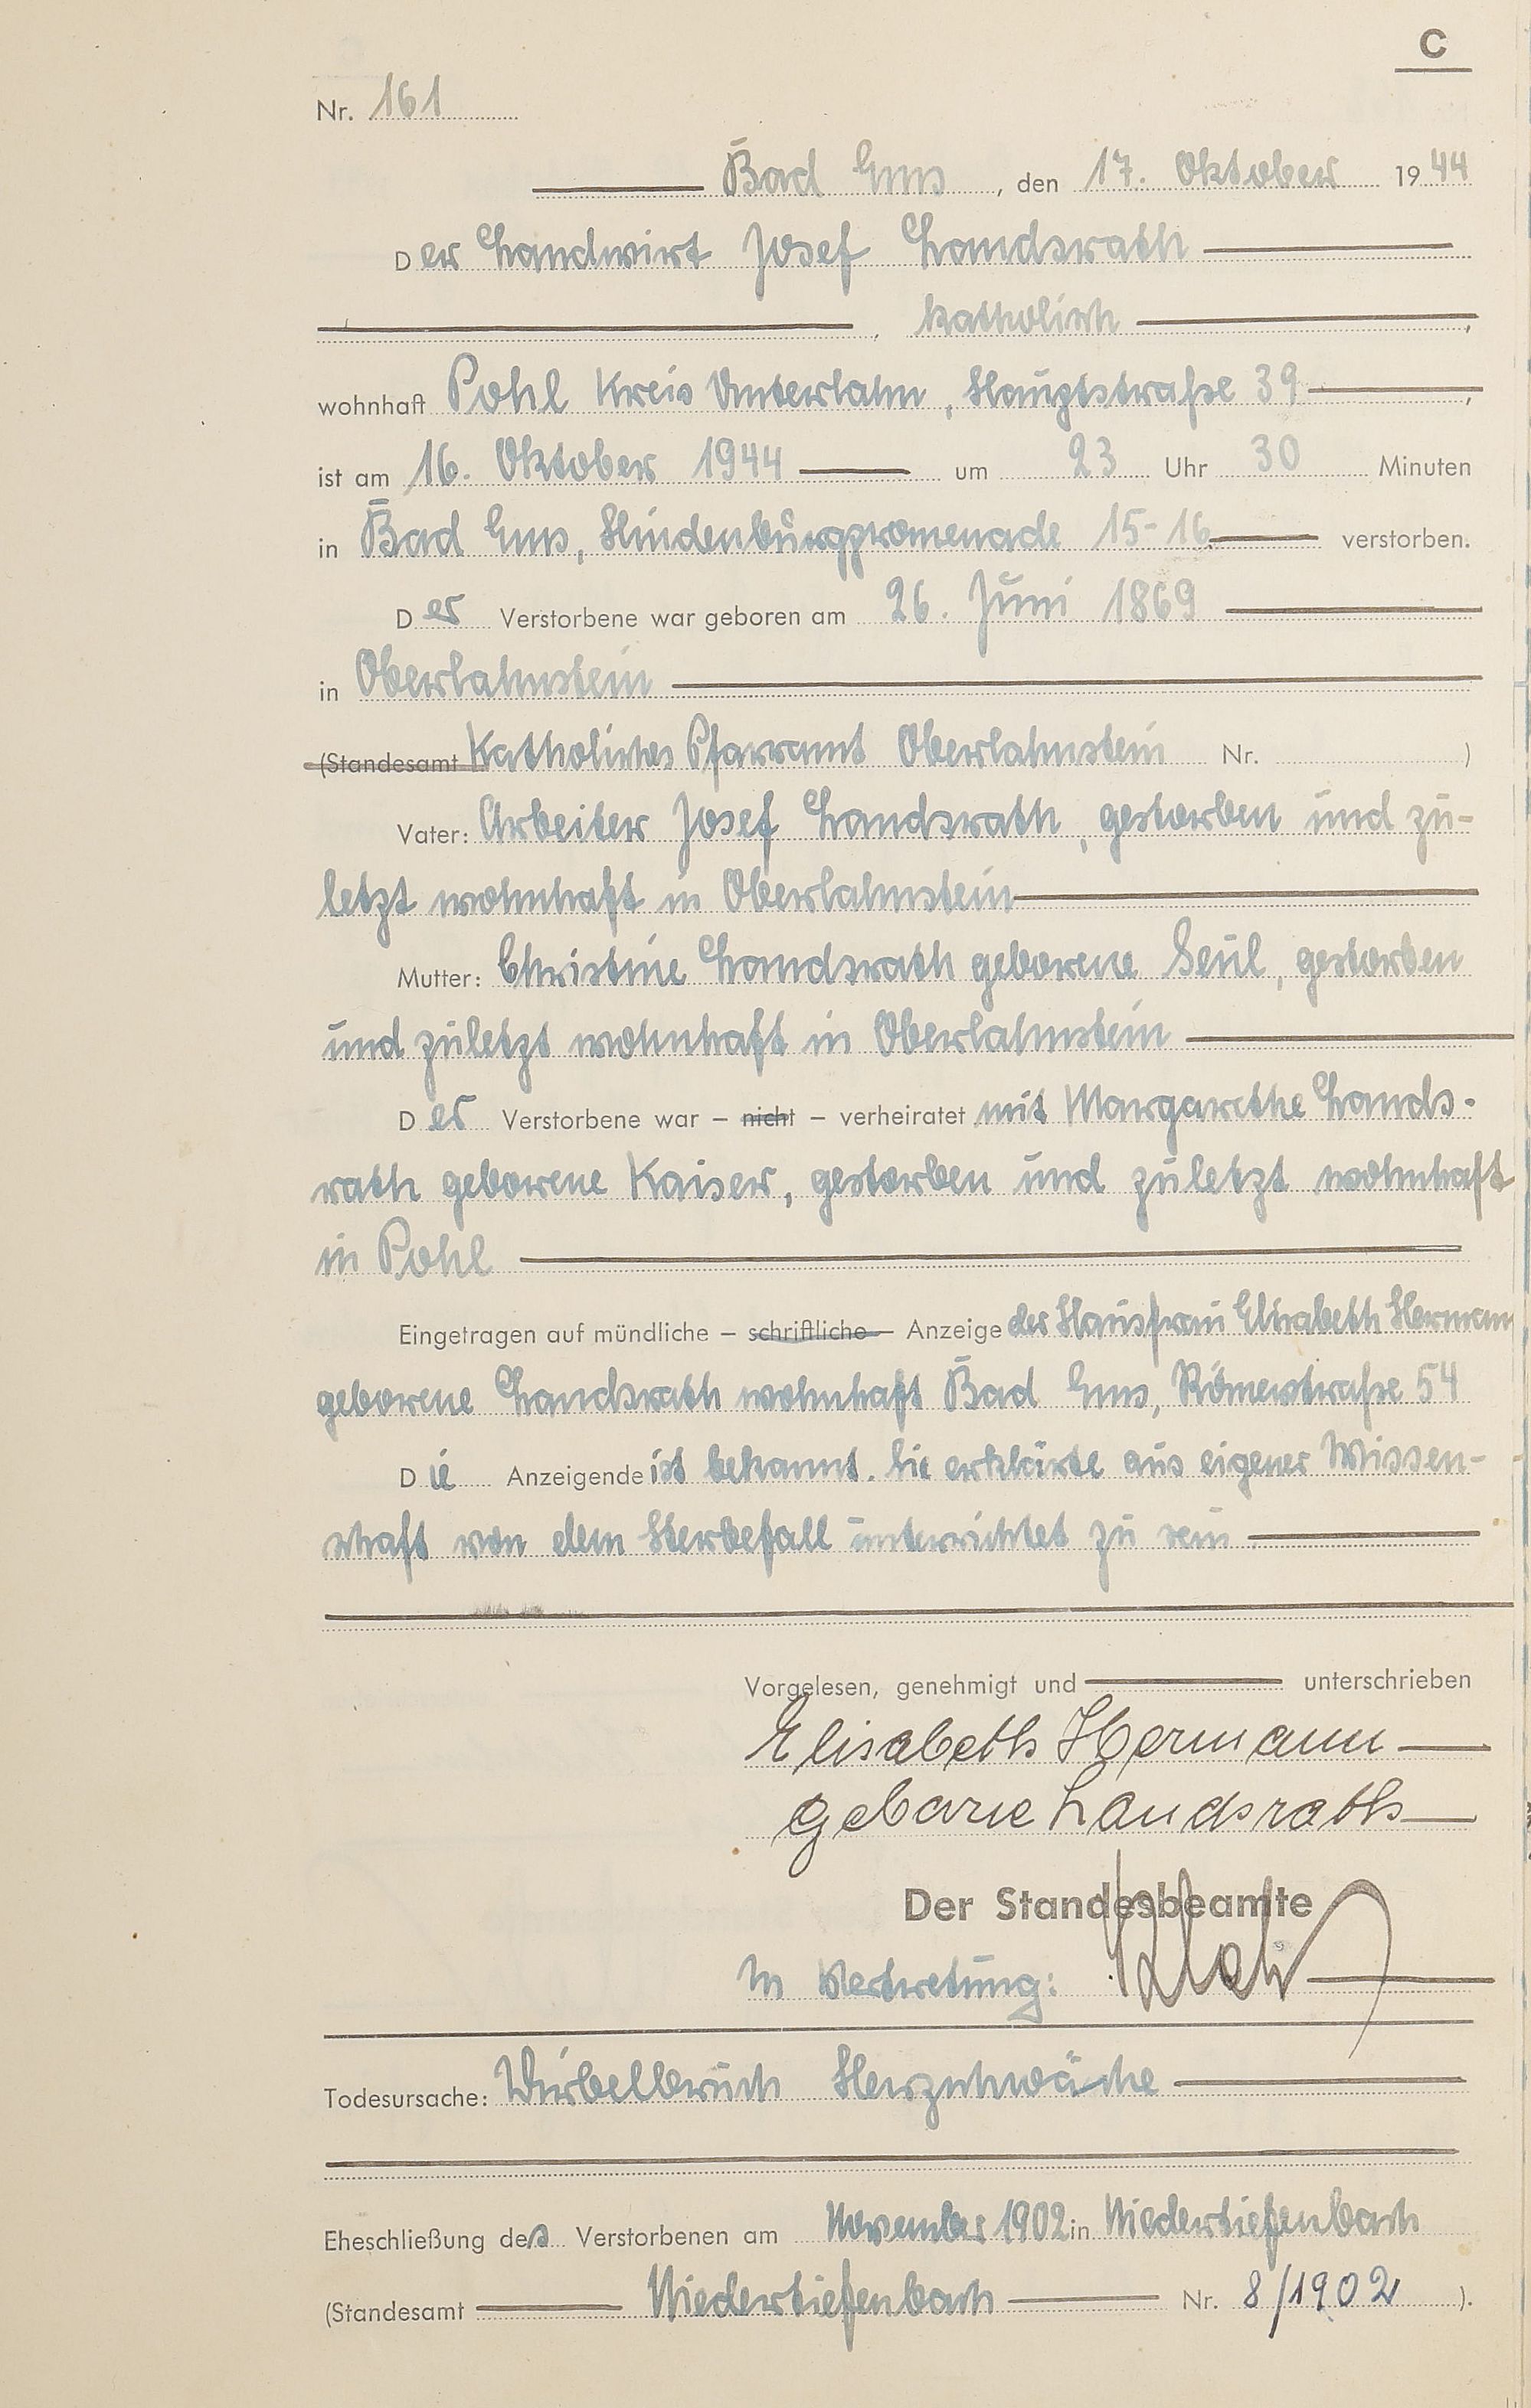 C
Nr. 161
Bad Ems, den 17. Oktober 1944
Der Landwirt Josef Landsrath
, katholisch ,
wohnhaft Pohl Kreis Unterlahn, Hauptstraße 39 ,
ist am 16. Oktober 1944 um 23 Uhr 30 Minuten
in Bad Ems, Hindenburgpromenade 15-16 verstorben.
Der Verstorbene war geboren am 26. Juni 1869
in Oberlahnstein
(Standesamt Katholisches Pfarramt Oberlahnstein Nr. )
Vater: Arbeiter Josef Landsrath, gestorben und zu-
letzt wohnhaft in Oberlahnstein
Mutter: Christine Landsrath geborene Seul, gestorben
und zuletzt wohnhaft in Oberlahnstein
Der Verstorbene war – nicht – verheiratet mit Margarethe Lands-
rath geborene Kaiser, gestorben und zuletzt wohnhaft
in Pohl
Eingetragen auf mündliche – schriftliche – Anzeige der Hausfrau Elisabeth Hermann
geborene Landsrath wohnhaft Bad Ems, Römerstraße 54
Die Anzeigende ist bekannt. Sie erklärte aus eigener Wissen-
schaft von dem Sterbefall unterrichtet zu sein
Vorgelesen, genehmigt und unterschrieben
Elisabeth Hermann
geborne Landsrath
Der Standesbeamte
In Vertretung:
Todesursache: Wirbelbruch Herzschwäche
Eheschließung des Verstorbenen am November 1902 in Niedertiefenbach
(Standesamt Niedertiefenbach Nr. 8/1902 ).